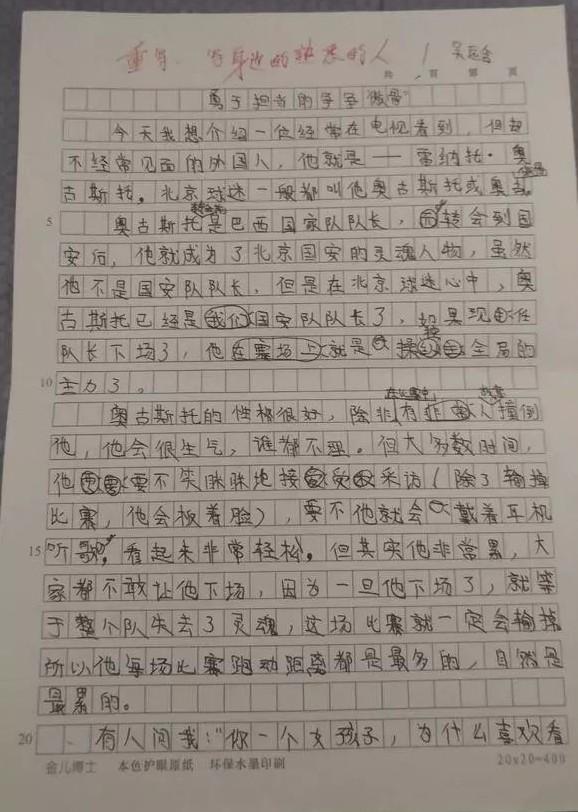 重写、写身边的熟悉的人
共 页 第 页
勇于担当的李圣"傲骨"
今天我想介绍一位经常在电视看到，但却
不经常见面的外国人，他就是——雷纳托·奥
古斯托。北京球迷一般都叫他奥古斯托或奥古
5 奥古斯托是巴西国家队队长，转会到国
安后，他就成为了北京国安的灵魂人物，虽然
他不是国安队队长，但是在北京球迷心中，奥
古斯托已经是我们国安队队长了，如果现任
队长下场了，他在赛场上就是操全局的
10 主力了。
奥古斯托的性格很好，除非有人故意撞倒
他，他会很生气，谁都不理。但大多数时间，
他要不笑眯眯地接受采访（除了输掉
比赛，他会板着脸），要不他就会戴着耳机
15 听歌，看起来非常轻松。但其实他非常累，大
家都不敢让他下场，因为一旦他下场了，就等
于整个队失去了灵魂，这场比赛就一定会输掉
所以他每场比赛跑动距离都是最多的，自然是
最累的。
20 、有人问我："你一个女孩子，为什么喜欢看
金儿博士 本色护眼原纸 环保水墨印刷 20x20=400